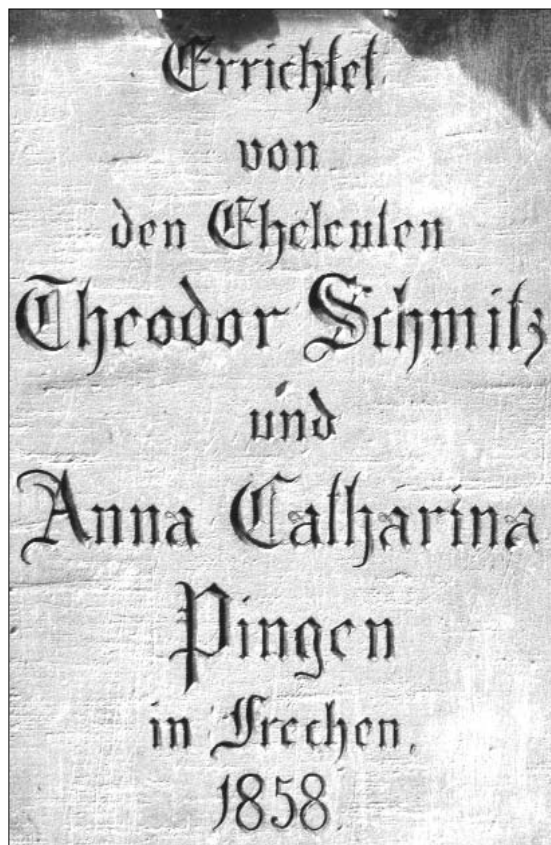 Errichtet
von
den Eheleuten
Theodor Schmitz
und
Anna Catharina
Pingen
in Frechen.
1858